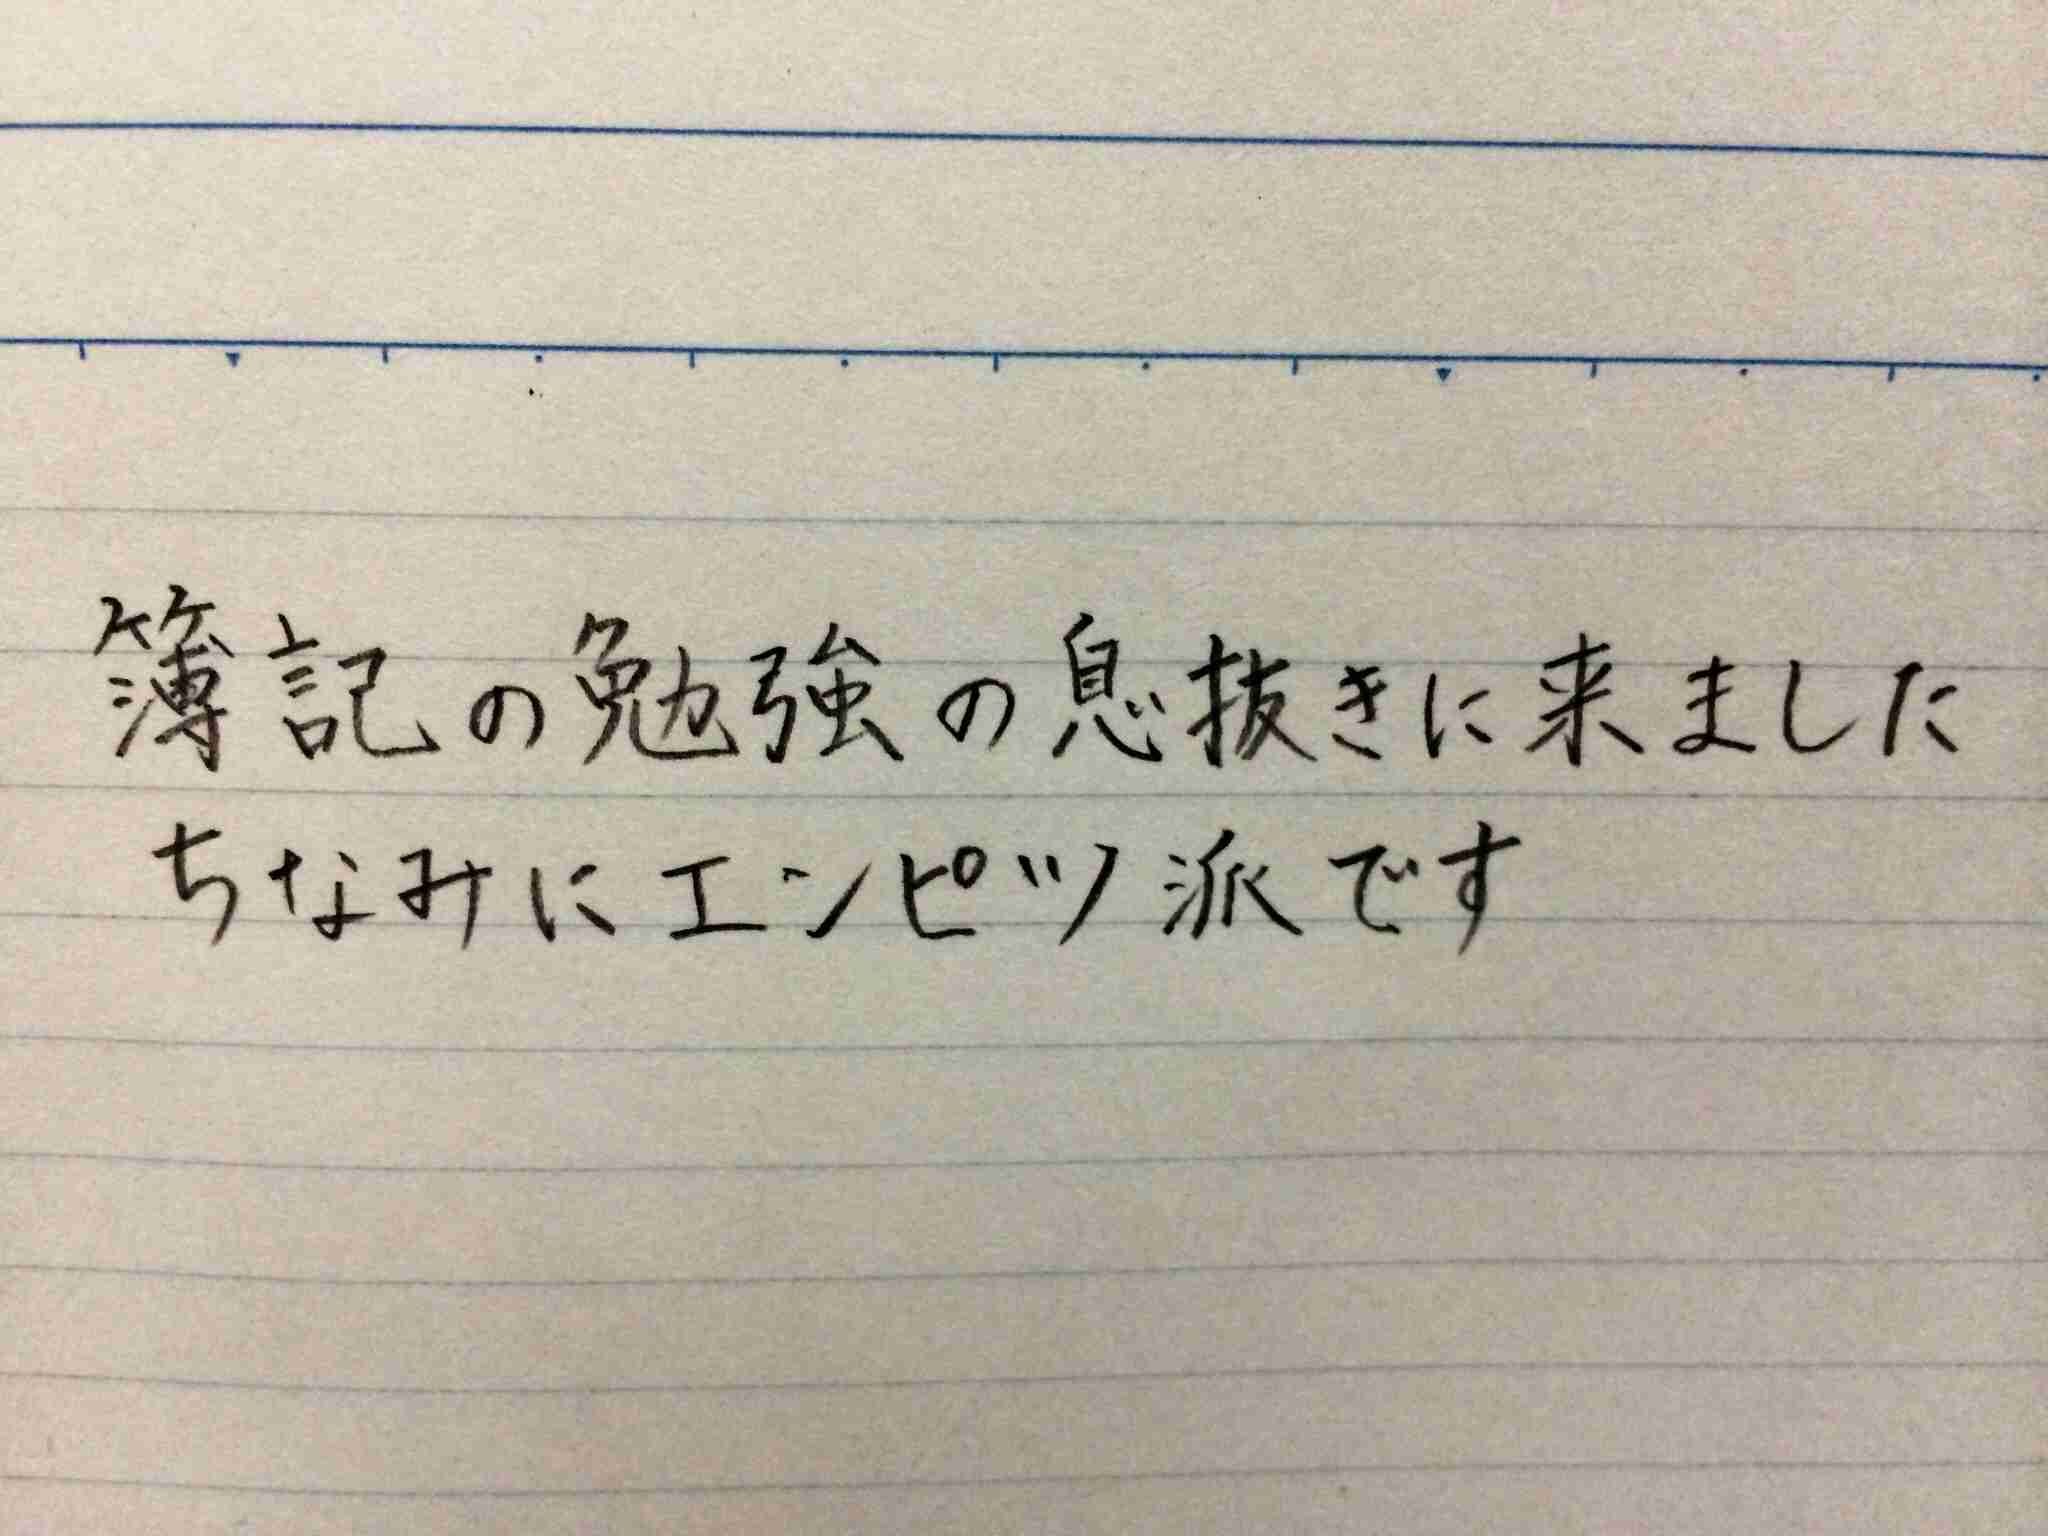 簿記の勉強の息抜きに来ました
ちなみにエンピツ派です